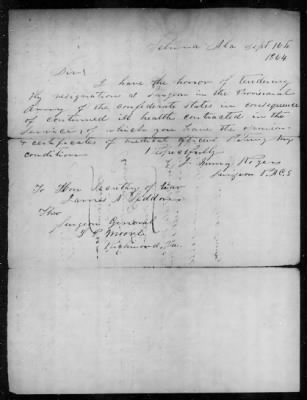 Selma Ala Sept 16th
1864
Sir
I have the honor of tendering
my resignation as Surgeon in the Provisional
Army of the Confederate States in consequence
of continued ill health contracted in the
Service, of which you have the
& certificates of medical officers stating my
condition
Respectfully
J. Rogers
Surgeon P.A.C.S
To Hon Secretary of War
James A Seddon
Thro
Surgeon General
S P Moore
Richmond, Va.